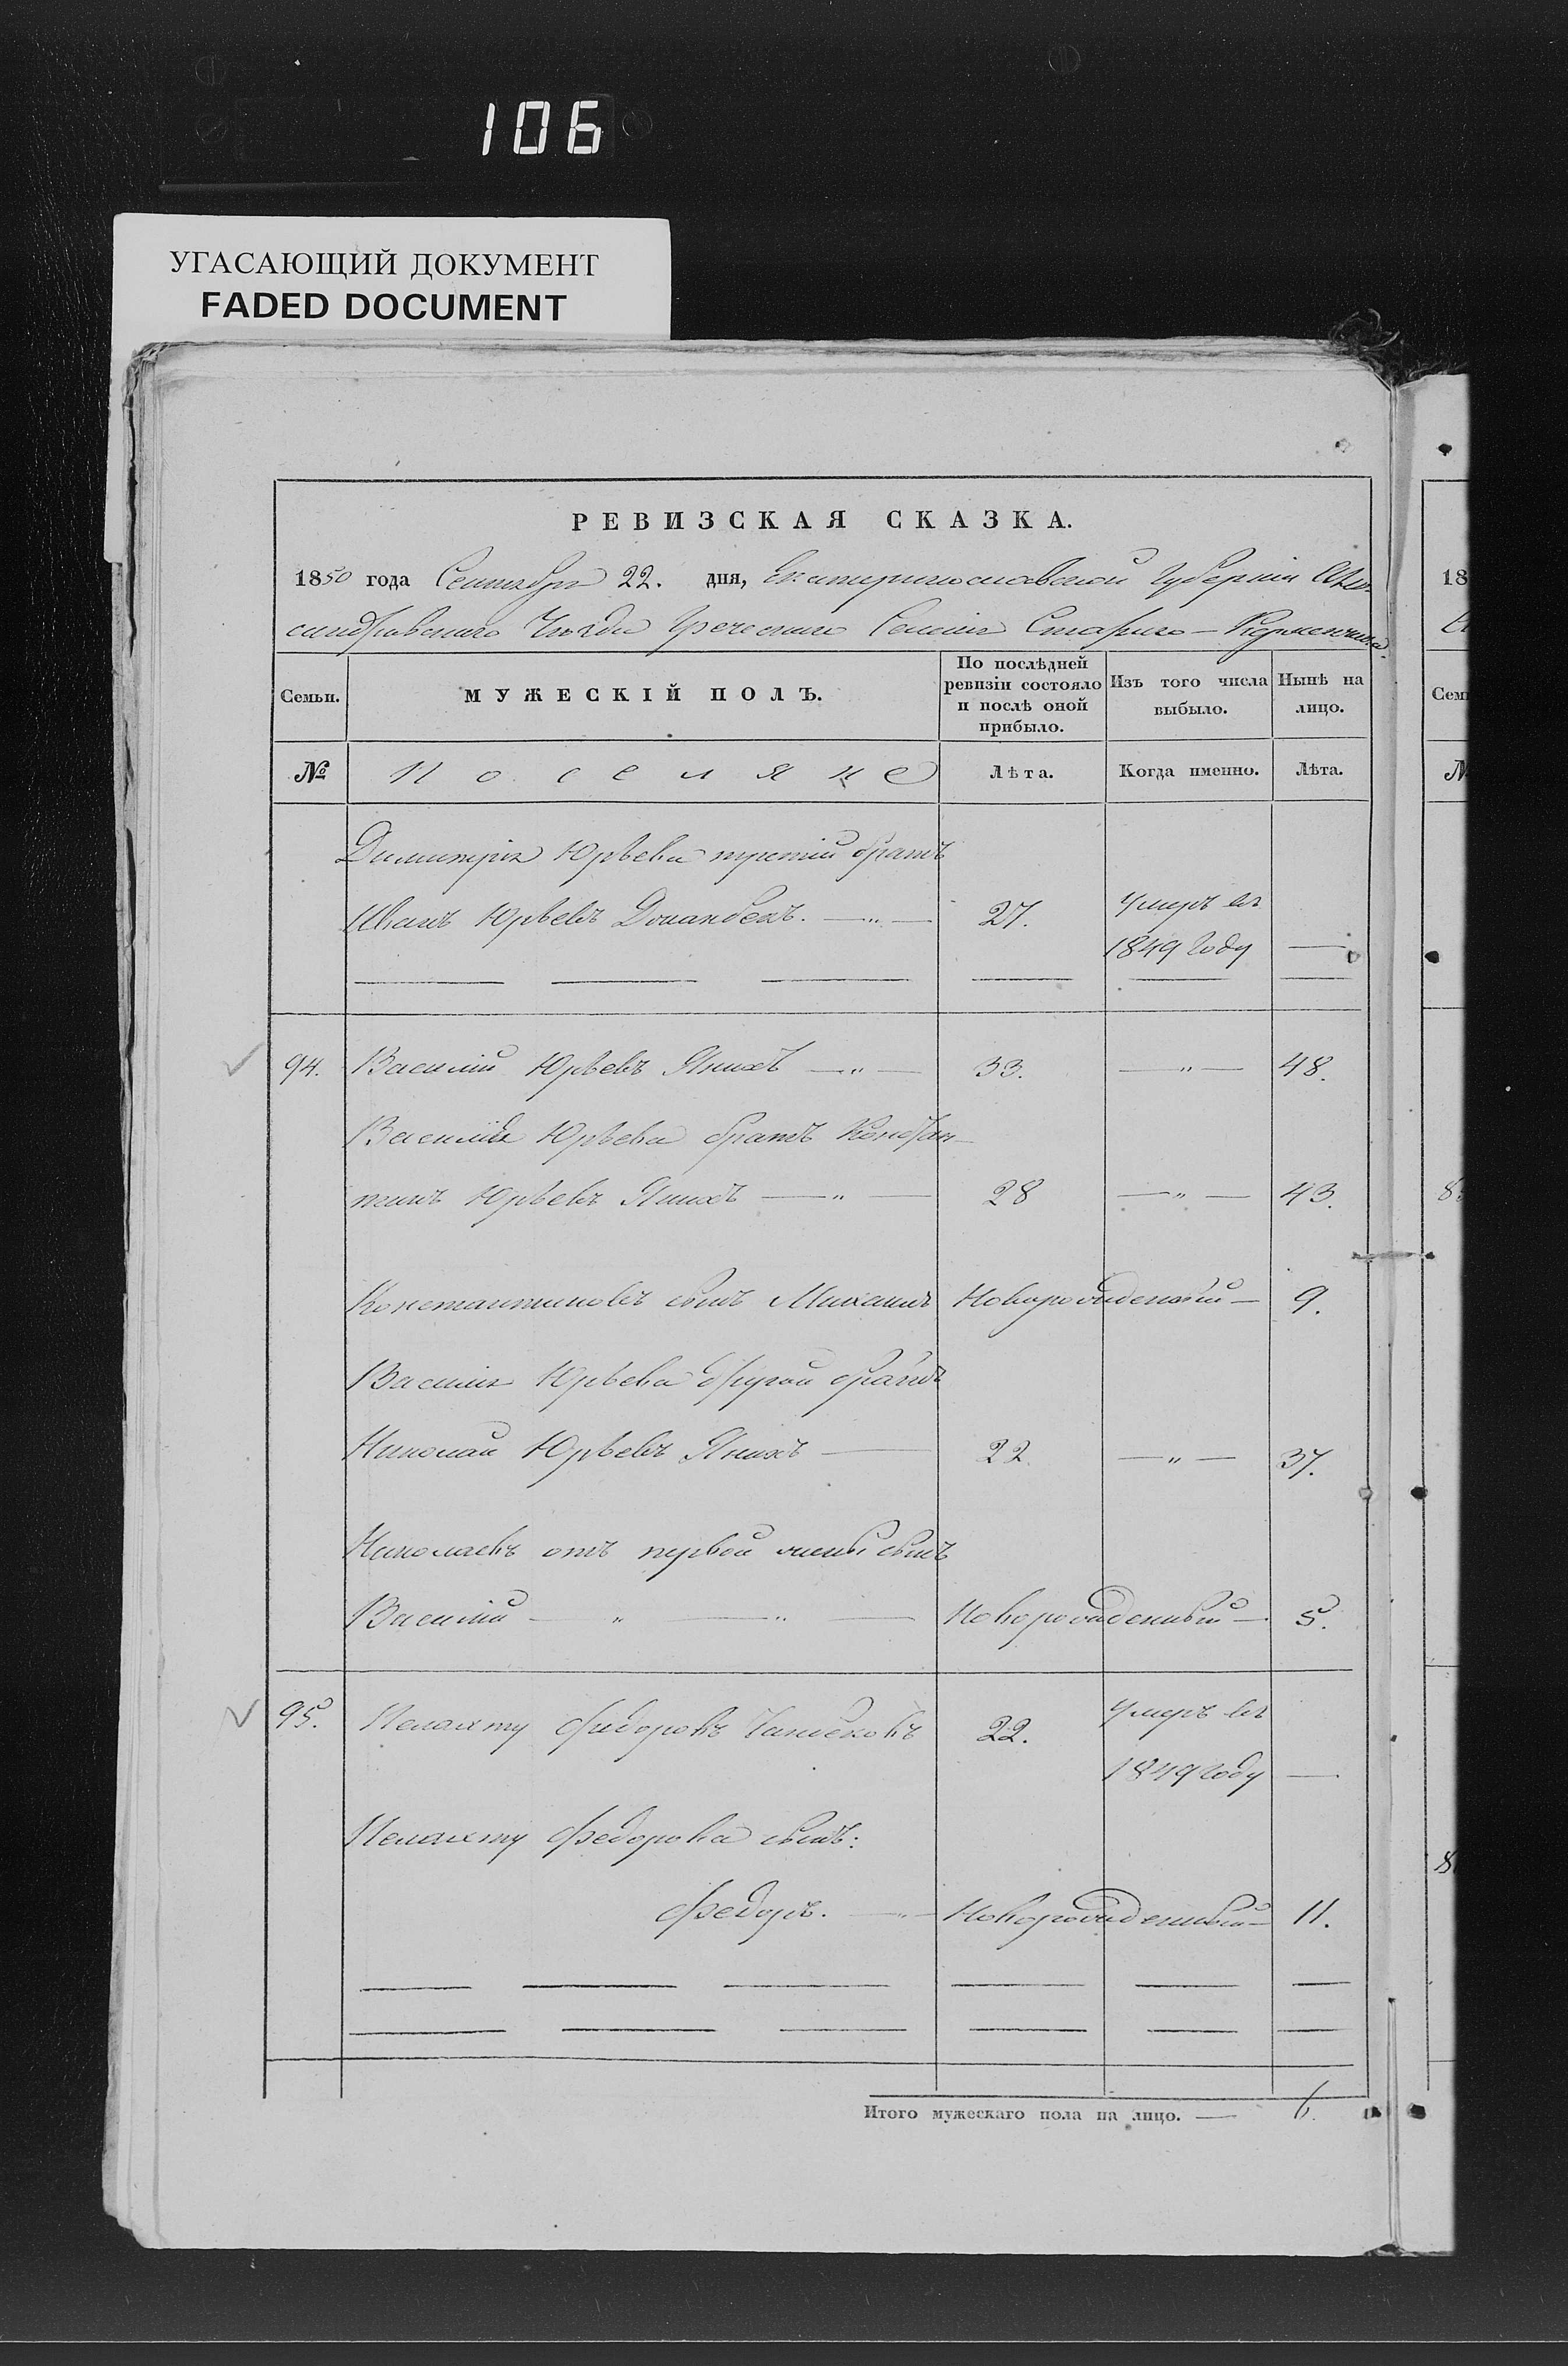 106
УГАСАЮЩИЙ ДОКУМЕНТ
FADED DOCUMENT
РЕВИЗСКАЯ СКАЗКА.
1850 года Сентября 22. дня, Екатеринославской Губерніи Алек-
сандровскаго Уѣзда Греческаго Селенія Стараго-Керменчика.
Семьи. МУЖЕСКІЙ ПОЛЪ. По послѣдней ревизіи состояло и послѣ оной прибыло. Изъ того числа выбыло. Нынѣ на лицо.
№ Поселяне Лѣта. Когда именно. Лѣта.
Димитрія Юрьева третій братъ
Иванъ Юрьевъ — „ — 27. Умеръ въ
1849 году —
94. Василій Юрьевъ Янихъ — „ — 33. — „ — 48.
Василія Юрьева братъ Констан-
тинъ Юрьевъ Янихъ — „ — 28 — „ — 43.
Константиновъ сынъ Михаилъ Новорожденный — 9.
Василія Юрьева другой братъ
Николай Юрьевъ Янихъ — 22. — „ — 37.
Николаевъ отъ первой жены сынъ
Василій — „ — „ — Новорожденный — 5.
95. Федоровъ 22. Умеръ въ
1849 году —
Федорова сынъ:
Федоръ. — „ — Новорожденный — 11.
Итого мужескаго пола на лицо. — 6.
18
Сем
№